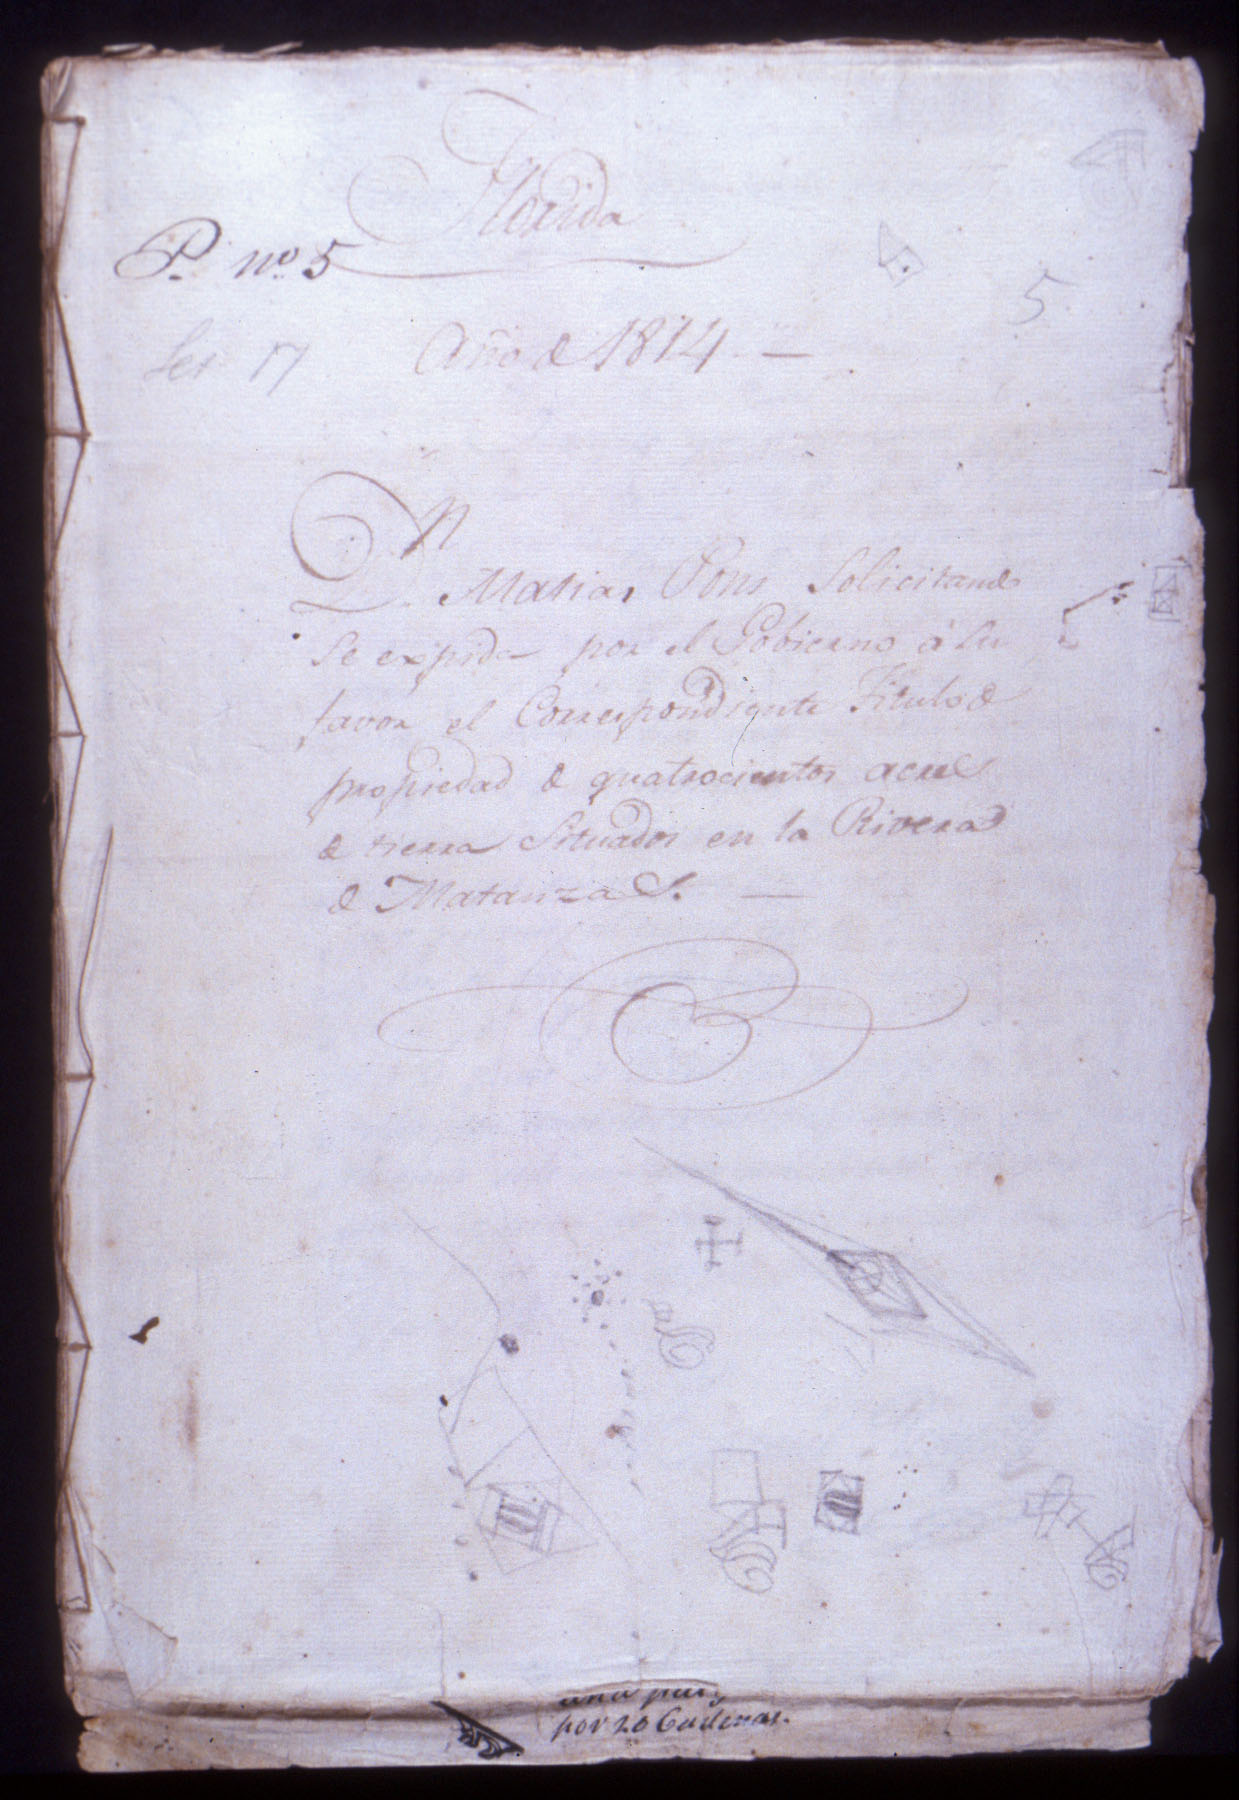 Florida
P. nº 5
5
Ser 17
Año de 1814
Dn
Matias Pons Solicitando
se expida por el Gobierno á su
favor el Correspondiente Titulo de
propiedad de quatrocientos acres
de tierra Situados en la Rivera
de Matanzas.
por 20 Cadenas.